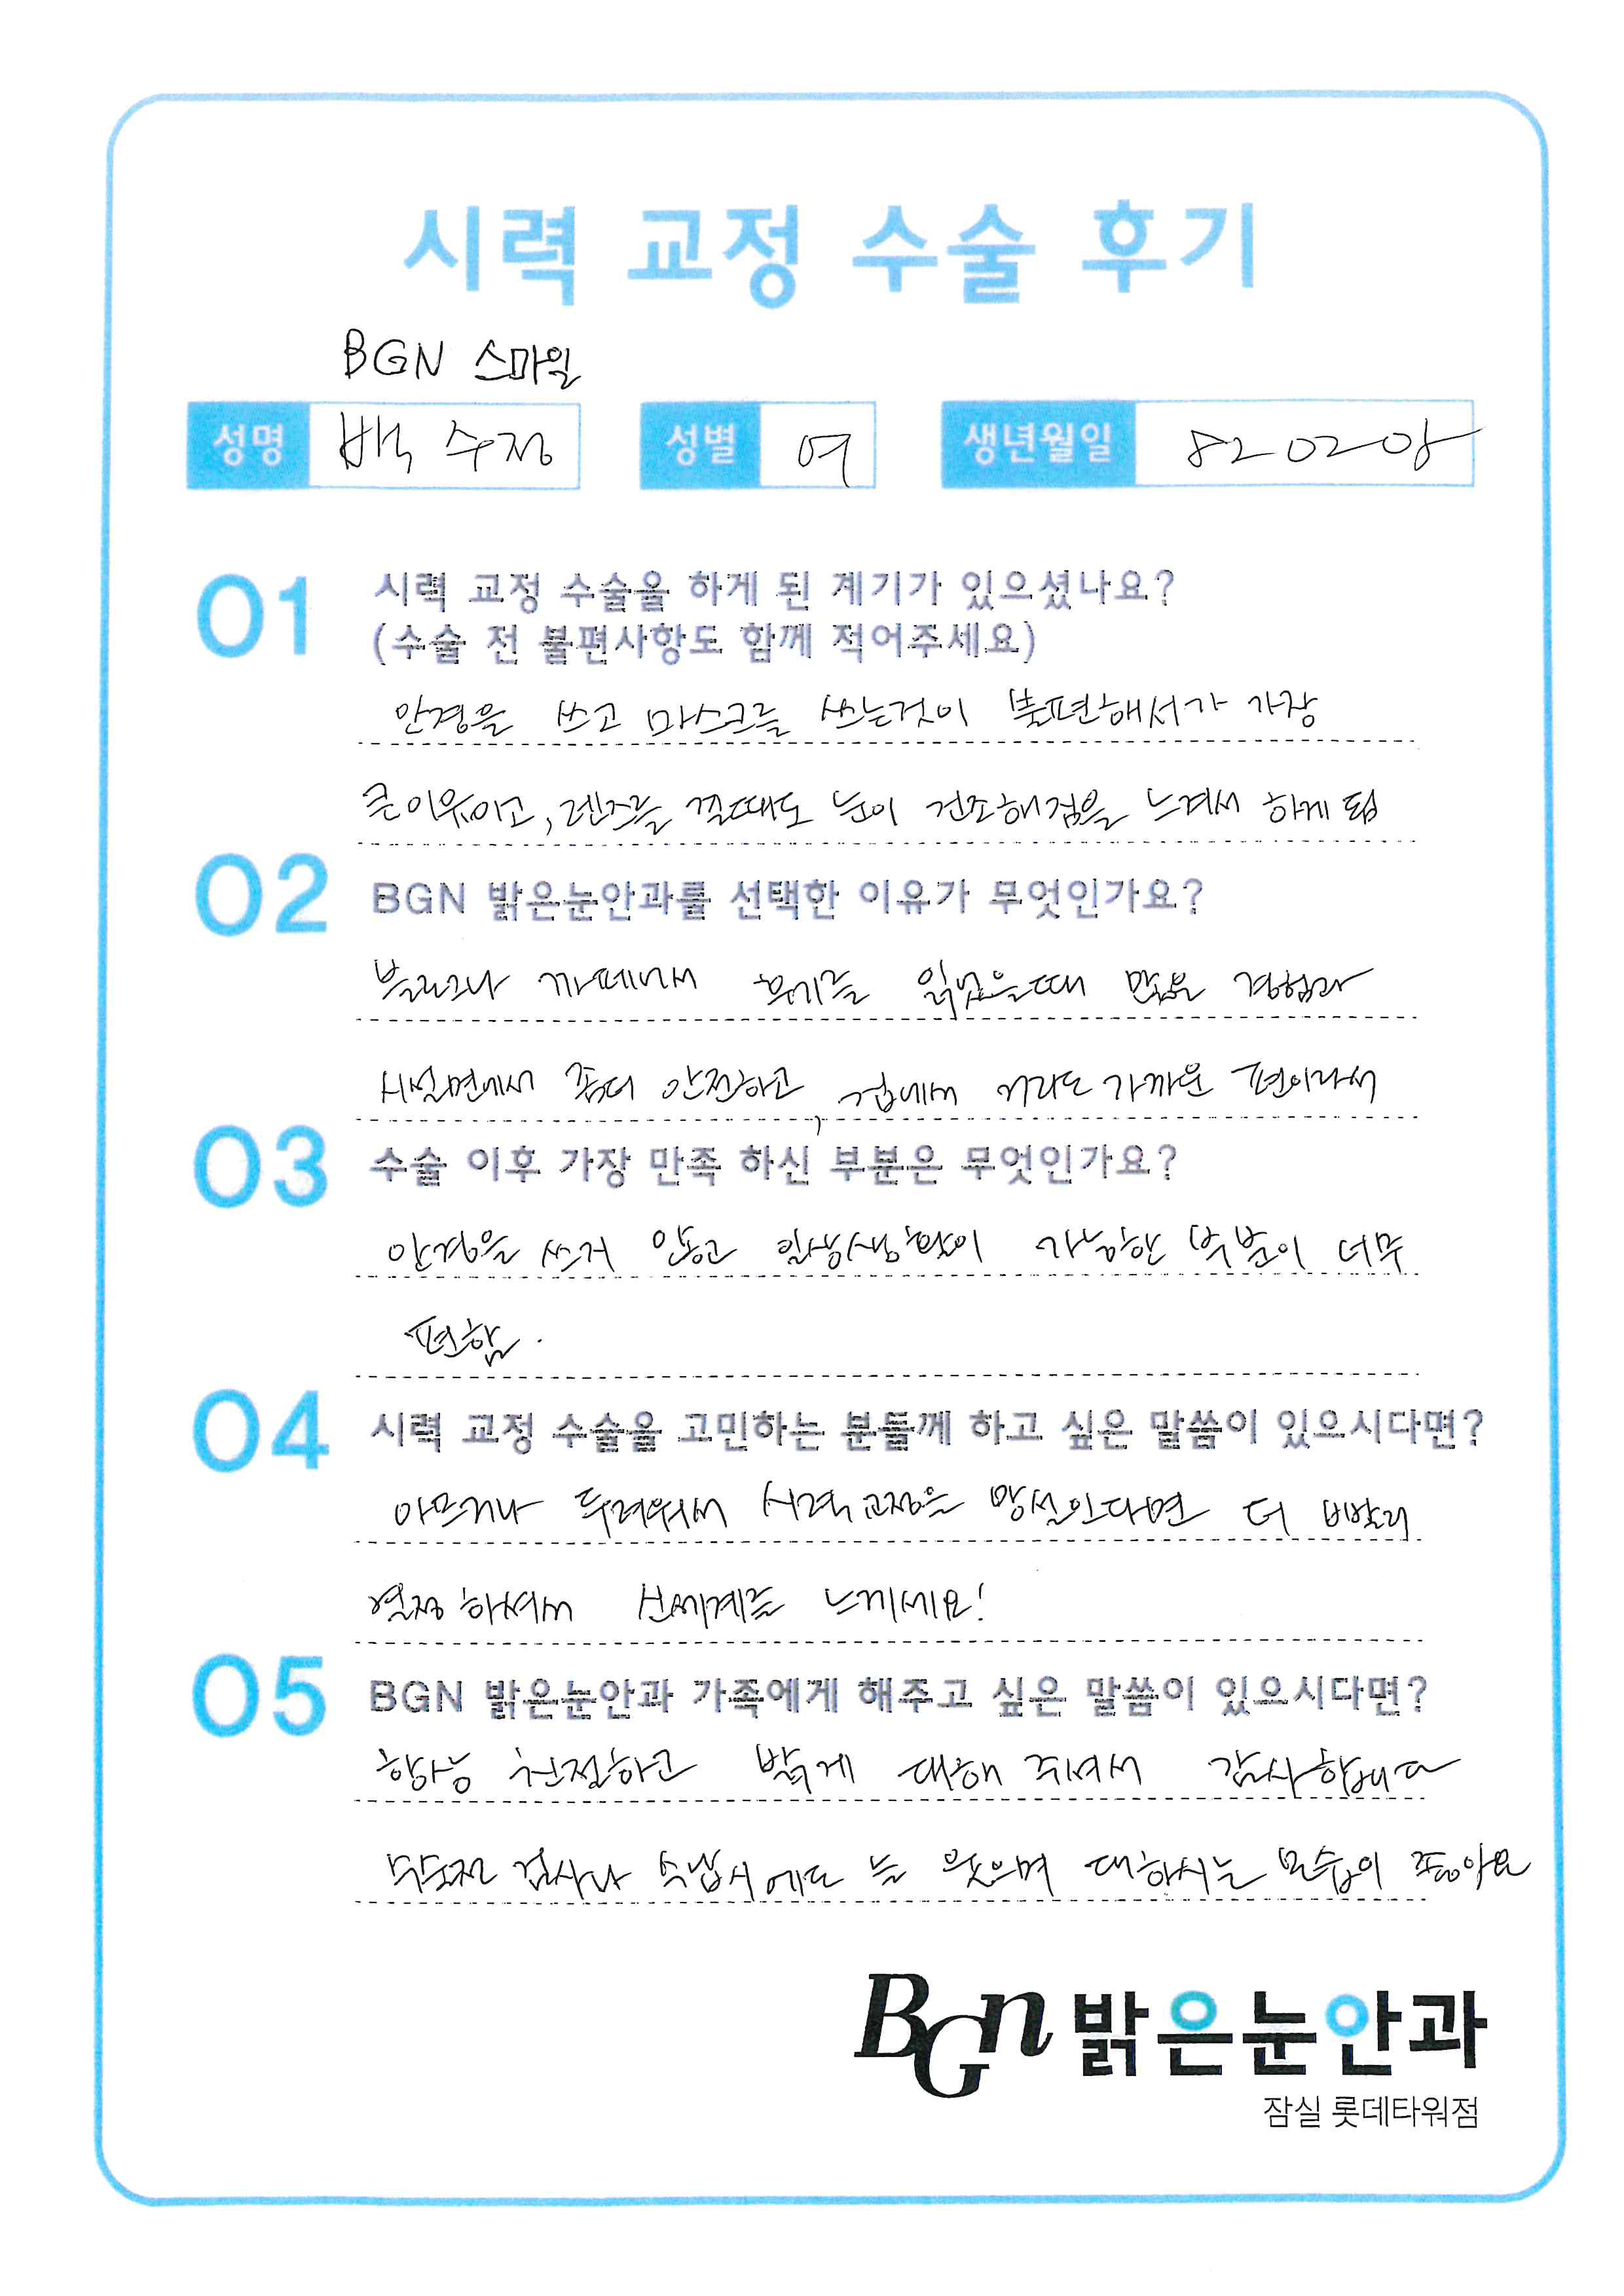 시력 교정 수술 후기
BGN 스마일
성명 백수정 성별 여 생년월일
01 시력 교정 수술을 하게 된 계기가 있으셨나요?
(수술 전 불편사항도 함께 적어주세요)
안경을 쓰고 마스크를 쓰는것이 불편해서가 가장
큰이유이고, 렌즈를 낄때도 눈이 건조해짐을 느껴서 하게 됨
02 BGN 밝은눈안과를 선택한 이유가 무엇인가요?
블로그나 까페에서 후기를 읽었을때 많은 경험과
시설면에서 좀더 안전하고, 집에서 거리도 가까운 편이라서
03 수술 이후 가장 만족 하신 부분은 무엇인가요?
안경을 쓰지 않고 일상생활이 가능한 부분이 너무
편함.
04 시력 교정 수술을 고민하는 분들께 하고 싶은 말씀이 있으시다면?
아프거나 두려워서 시력교정을 망설인다면 더 빨리
결정하셔서 신세계를 느끼세요!
05 BGN 밝은눈안과 가족에게 해주고 싶은 말씀이 있으시다면?
항상 친절하고 밝게 대해 주셔서 감사합니다
수술전 검사나 수납시에도 늘 웃으며 대하시는 모습이 좋아요
BGN 밝은눈안과
잠실 롯데타워점